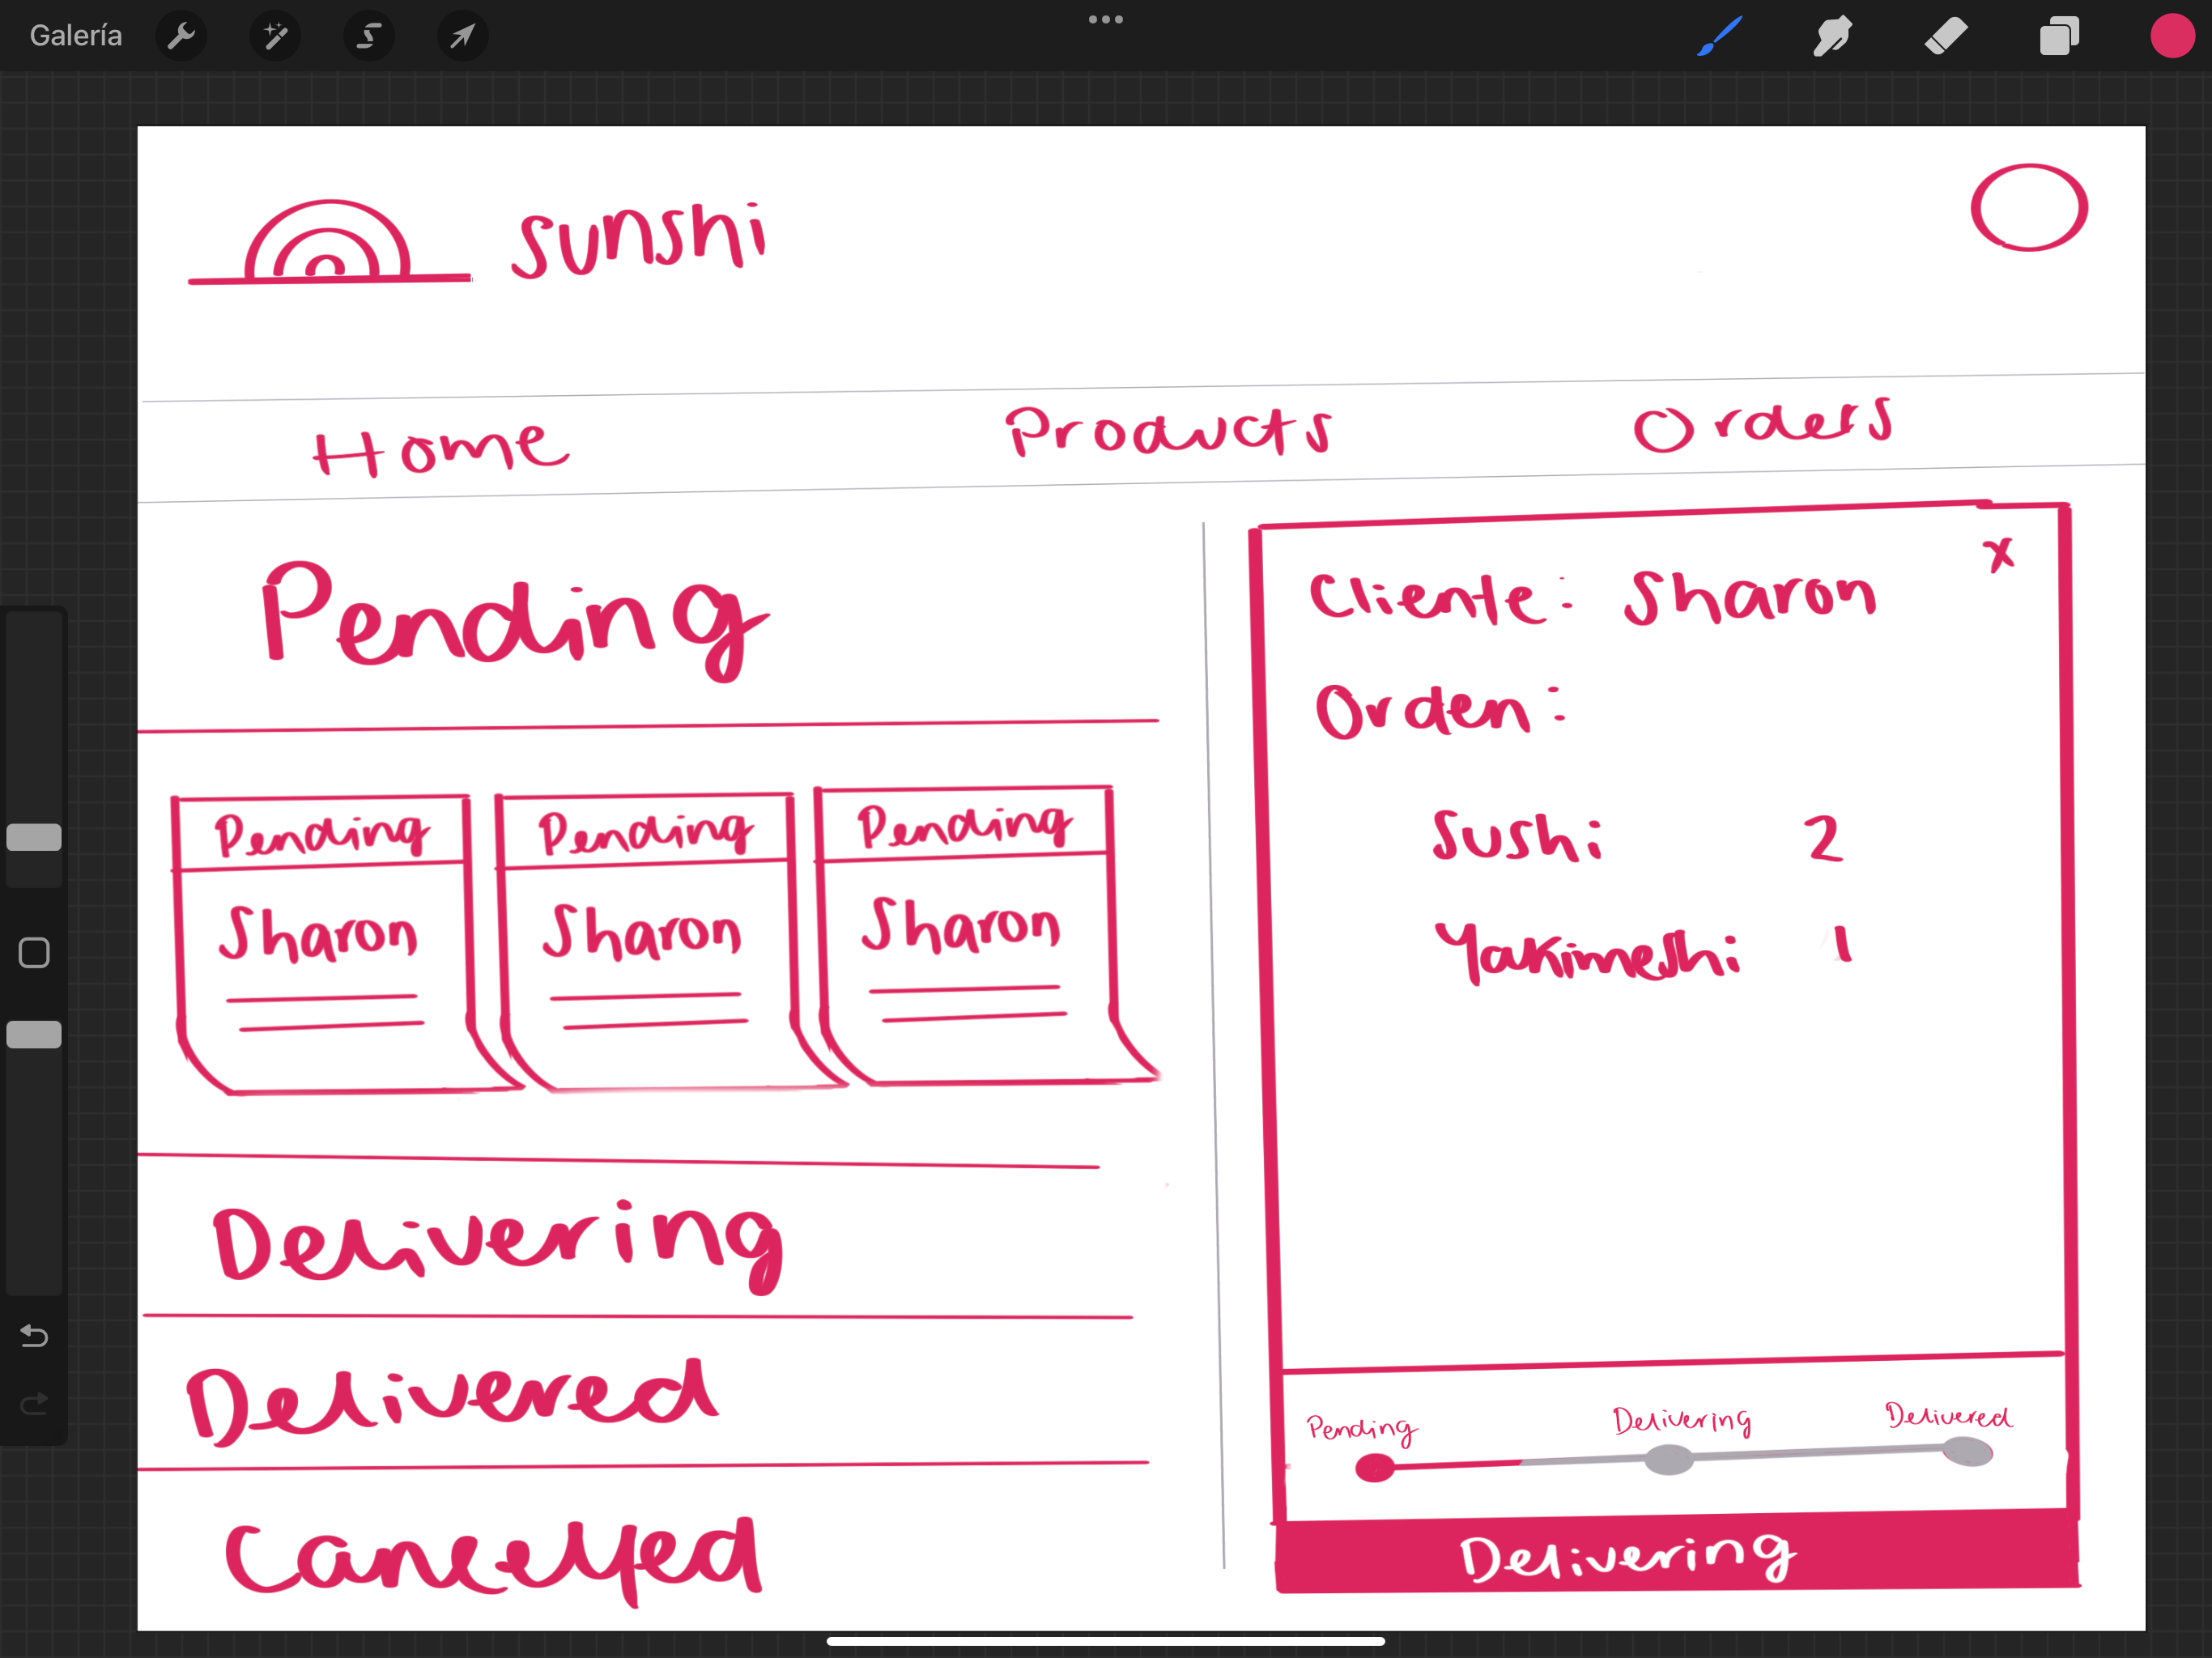 Galería
sunshi
Home Products Orders
Pending
Pending Pending Pending
Sharon Sharon Sharon
Delivering
Delivered
x
Cliente: Sharon
Orden:
Sushi 2
Yakimeshi 1
Pending Delivering Delivered
Delivering